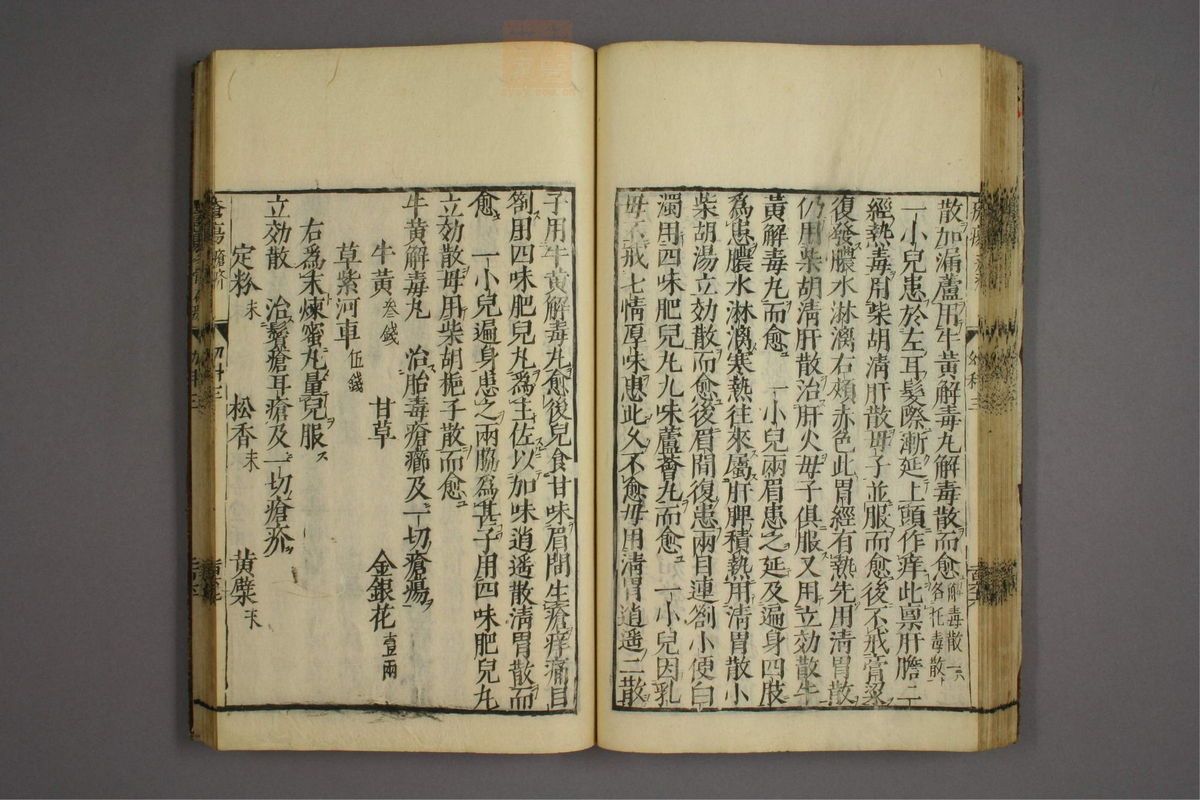 散加漏蘆用牛黃解毒丸解毒散而愈解毒散一
名托毒散
一小兒患於左耳髮際漸延上頭作痒此禀肝膽二
經熱毒用柴胡清肝散母子並服而愈後不戒膏粱
復發膿水淋漓右頰赤色此胃經有熱先用清胃散
仍用柴胡清肝散治肝火母子俱服又用立効散牛
黃解毒丸而愈 一小兒兩眉患之延及遍身四肢
爲患膿水淋漓寒熱往來屬肝脾積熱用清胃散小
柴胡湯立効散而愈後眉間復患兩目連劄小便白
濁用四味肥兒丸九味蘆薈丸而愈 一小兒因乳
母不戒七情厚味患此久不愈母用清胃逍遥二散
子用牛黃解毒丸愈後兒食甘味眉間生瘡痒痛目
劄用四味肥兒丸爲主佐以加味逍遥散清胃散而
愈 一小兒遍身患之兩脇爲甚子用四味肥兒丸
立効散母用柴胡梔子散而愈
牛黃解毒丸 治胎毒瘡癤及一切瘡瘍
牛黃叁錢 甘草 金銀花壹兩
草紫河車伍錢
右爲末煉蜜丸量兒服
立効散 治鬢瘡耳瘡及一切瘡疥
定粉末 松香末 黃蘗末